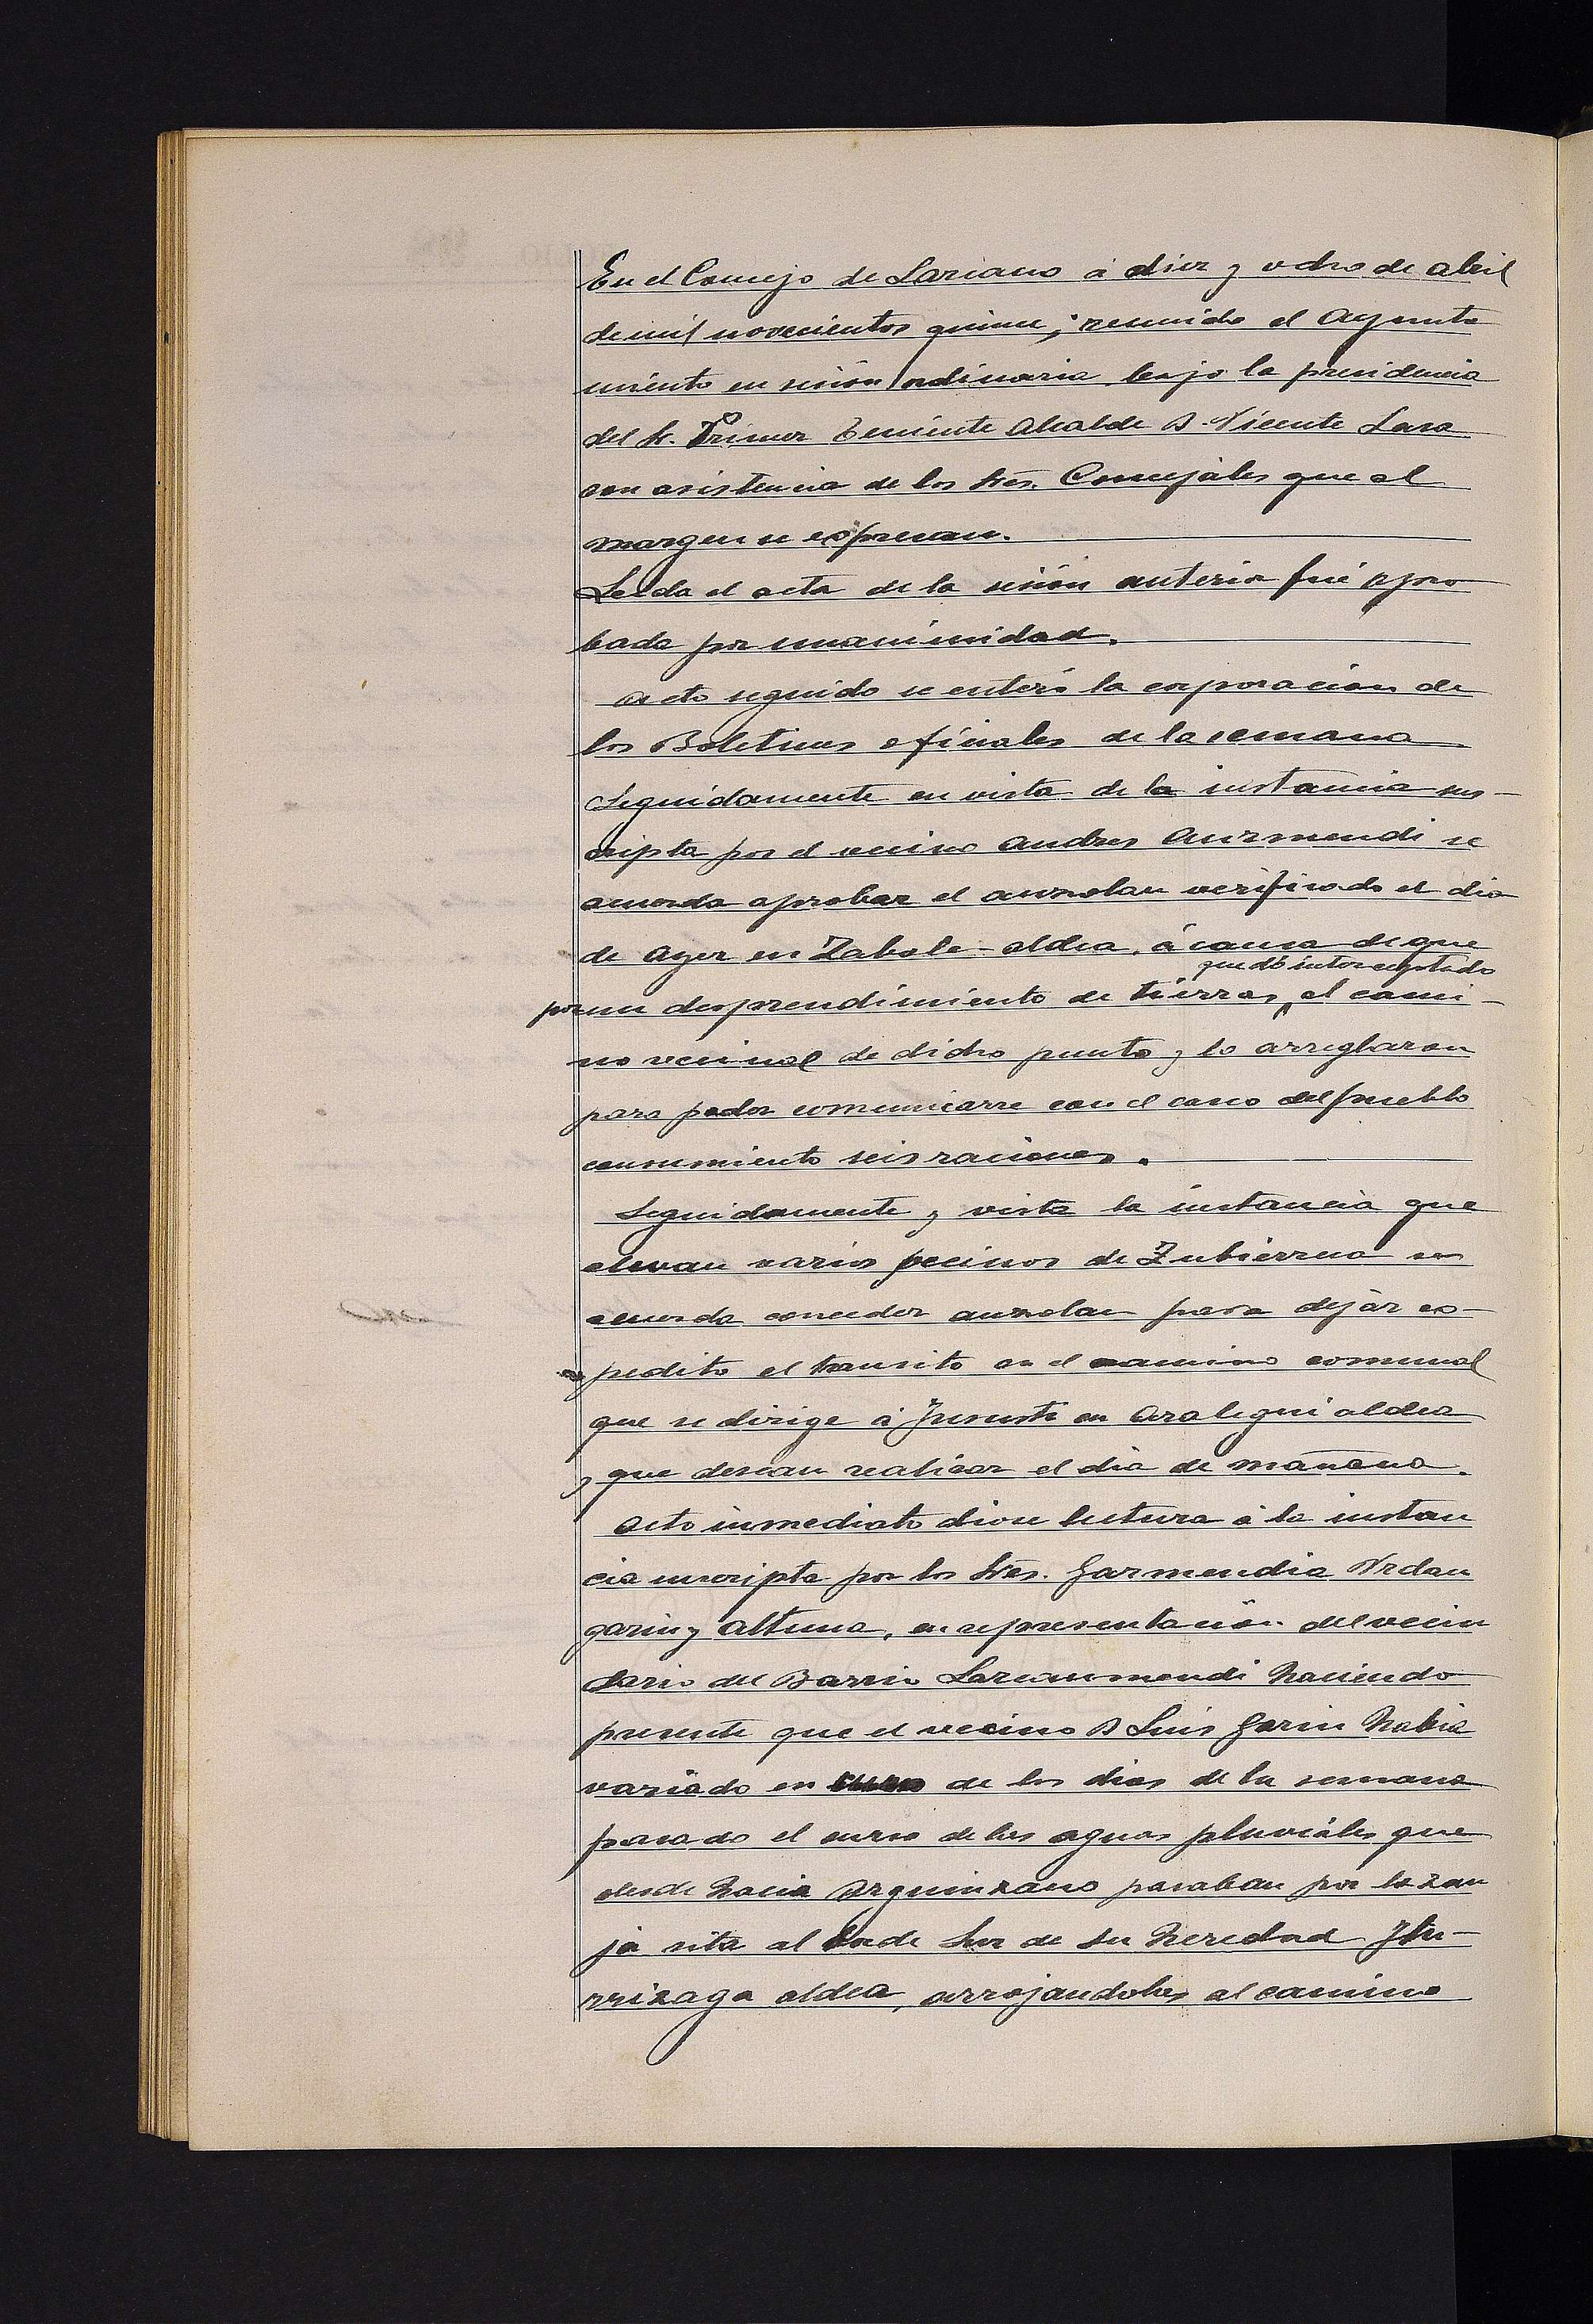 En el Concejo de Lazcano á diez y ocho de abril
de mil novecientos quince; reunido el Ayunta
miento en sesion ordinaria bajo la presidencia
del Sr. Primer Teniente Alcalde D. Vicente Lasa
con asistencia de los Sres. Concejales que al
margen se expresan.
Leida el acta de la sesión anterior fué apro
bada por unanimidad.
Acto seguido se enteró la corporacion de
los Boletines oficiales de la semana
Seguidamente en vista de la instancia sus-
cripta por el vecino Andres Aurmendi se
acuerda aprobar el auzolan verificado el dia
de ayer en Zabale-aldea, á causa de que
por un desprendimiento de tierras quedó interceptado el cami-
no vecinal de dicho punto y lo arreglaron
para poder comunicarse con el casco del pueblo
consumiento seis raciones.
Seguidamente y vista la instancia que
elevan varios vecinos de Zubierreca se
acuerda conceder auzolan para dejar es-
pedito el transito en el camino comunal
que se dirige á Jausti en Aralegui aldea
y que desean realizar el dia de mañana.
Acto inmediato diose lectura á la instan
cia suscripta por los Sres. Garmendia Urdan
garin y Altuna, en representación del vecin
dario del Barrio Lazcanomendi haciendo
presente que el vecino D Luis Garin habia
variado en de los dias de la semana
pasado el curso de las aguas pluviales que
desde hacia Arguinzano pasaban por la zan
ja sita al lade Sur de su heredad Ytu-
rrizaga aldea, arrojandolas al camino